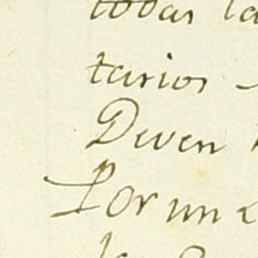 todas la
tarios
Deven
Por un